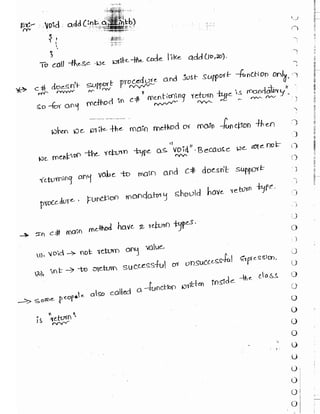 Ex:- Void add(int a, int b)
{
;
}
To call these we write the code like add(10,20).
* c# doesn't support procedure and Just support function only.
so for any method in c# "mentioning return type is mandatory".
when we write the main method or main function then
we mention the return type as "void". Because we are not
returning any value to main and c# doesn't support
procedure. Function mandatory should have return type.
→ In c# main method have 2 return types.
(i), void → not return any value.
(ii), int → to return successful or unsuccessful expression.
→ some people also called a function written inside the class
is "return".